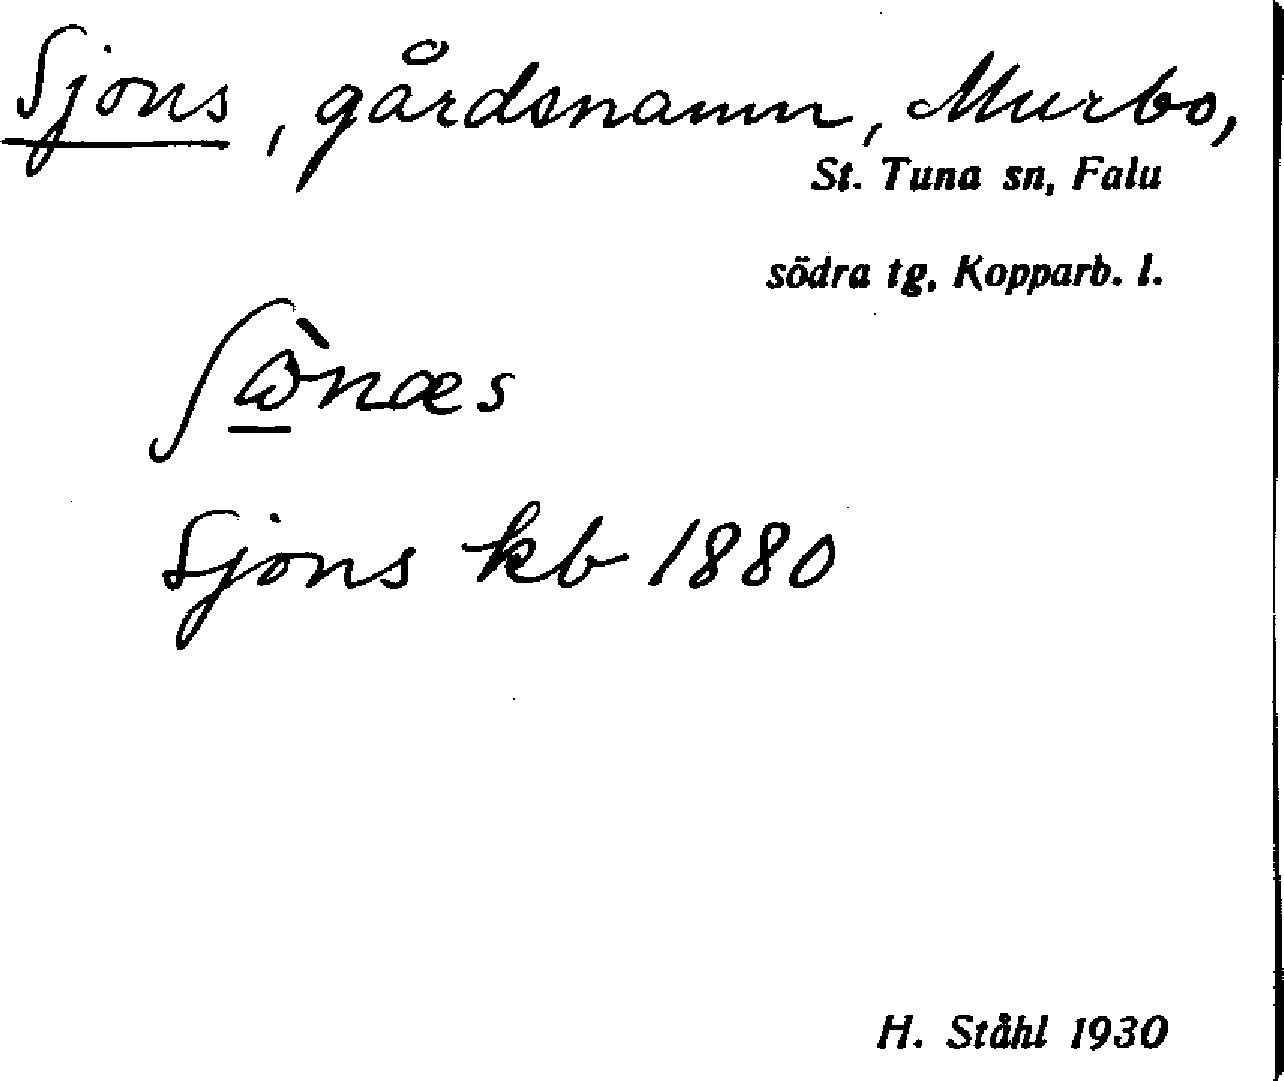 Sjons, gårdsnamn, Murbo,
St. Tuna sn, Falu
södra tg, Kopparb. l.
Sjons kb 1880
H. Ståhl 1930